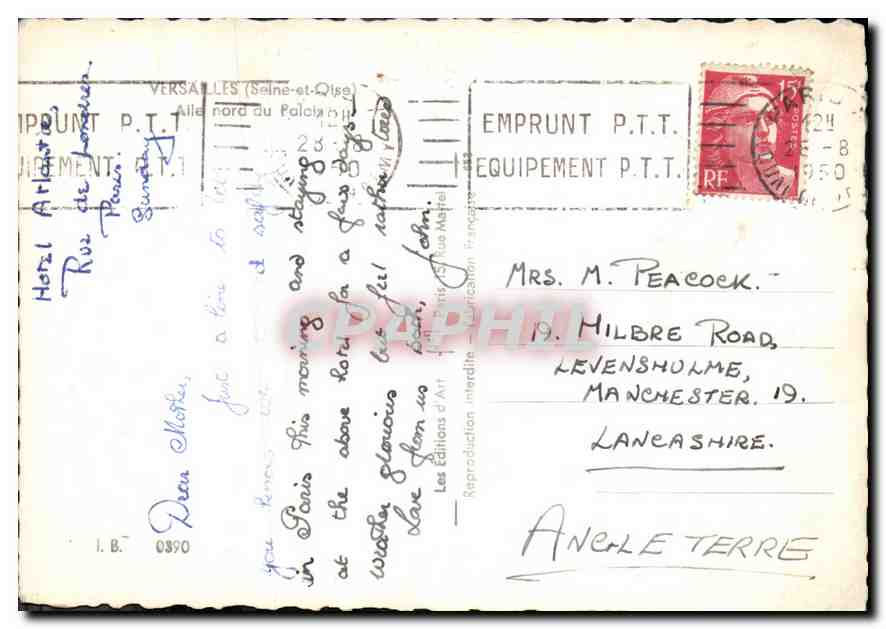 VERSAILLES (Seine-et-Oise)
Aile nord du Palais
EMPRUNT P.T.T.
EQUIPEMENT P.T.T.
EMPRUNT P.T.T.
EQUIPEMENT P.T.T.
15F
POSTES
RF
12H
1950
Hotel Atlantic,
Rue de Londres.
Paris.
Sunday
Dear Mother,
Just a line to let
you know we safely
in Paris this morning and staying
at the above hotel for a few days -
weather glorious but feel rather tired
Love from us both, John.
Les Editions d'Art Paris 15, Rue Martel
Reproduction interdite - Fabrication Française
I. B. 0390
MRS. M. PEACOCK.
19. HILBRE ROAD,
LEVENSHULME,
MANCHESTER. 19.
LANCASHIRE.
ANGLETERRE
CPAPHIL